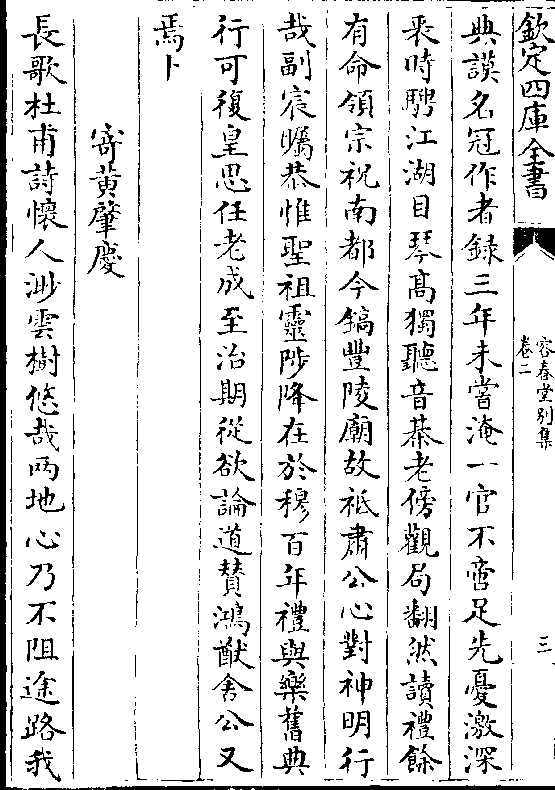 欽定四庫全書
容春堂別集
卷二
三
典謨名冠作者録三年未嘗淹一官不啻足先憂激深
衷時騁江湖目琴髙獨聽音棊老傍觀局翻然讀禮餘
有命領宗祝南都今鎬豐陵廟故祗肅公心對神明行
哉副宸矚恭惟聖祖靈陟降在於穆百年禮與樂舊典
行可復皇思任老成至治期從欲論道賛鴻猷舍公又
焉卜
寄黄肇慶
長歌杜甫詩懷人渺雲樹悠哉兩地心乃不阻途路我